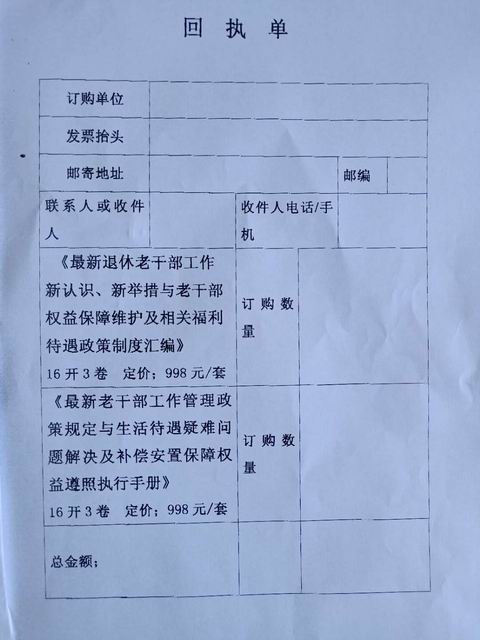 回 执 单
订购单位
发票抬头
邮寄地址
邮编
联系人或收件
人
收件人电话/手
机
《最新退休老干部工作
新认识、新举措与老干部
权益保障维护及相关福利
待遇政策制度汇编》
16 开 3 卷 定价；998 元/套
订 购 数
量
《最新老干部工作管理政
策规定与生活待遇疑难问
题解决及补偿安置保障权
益遵照执行手册》
16 开 3 卷 定价；998 元/套
订 购 数
量
总金额；